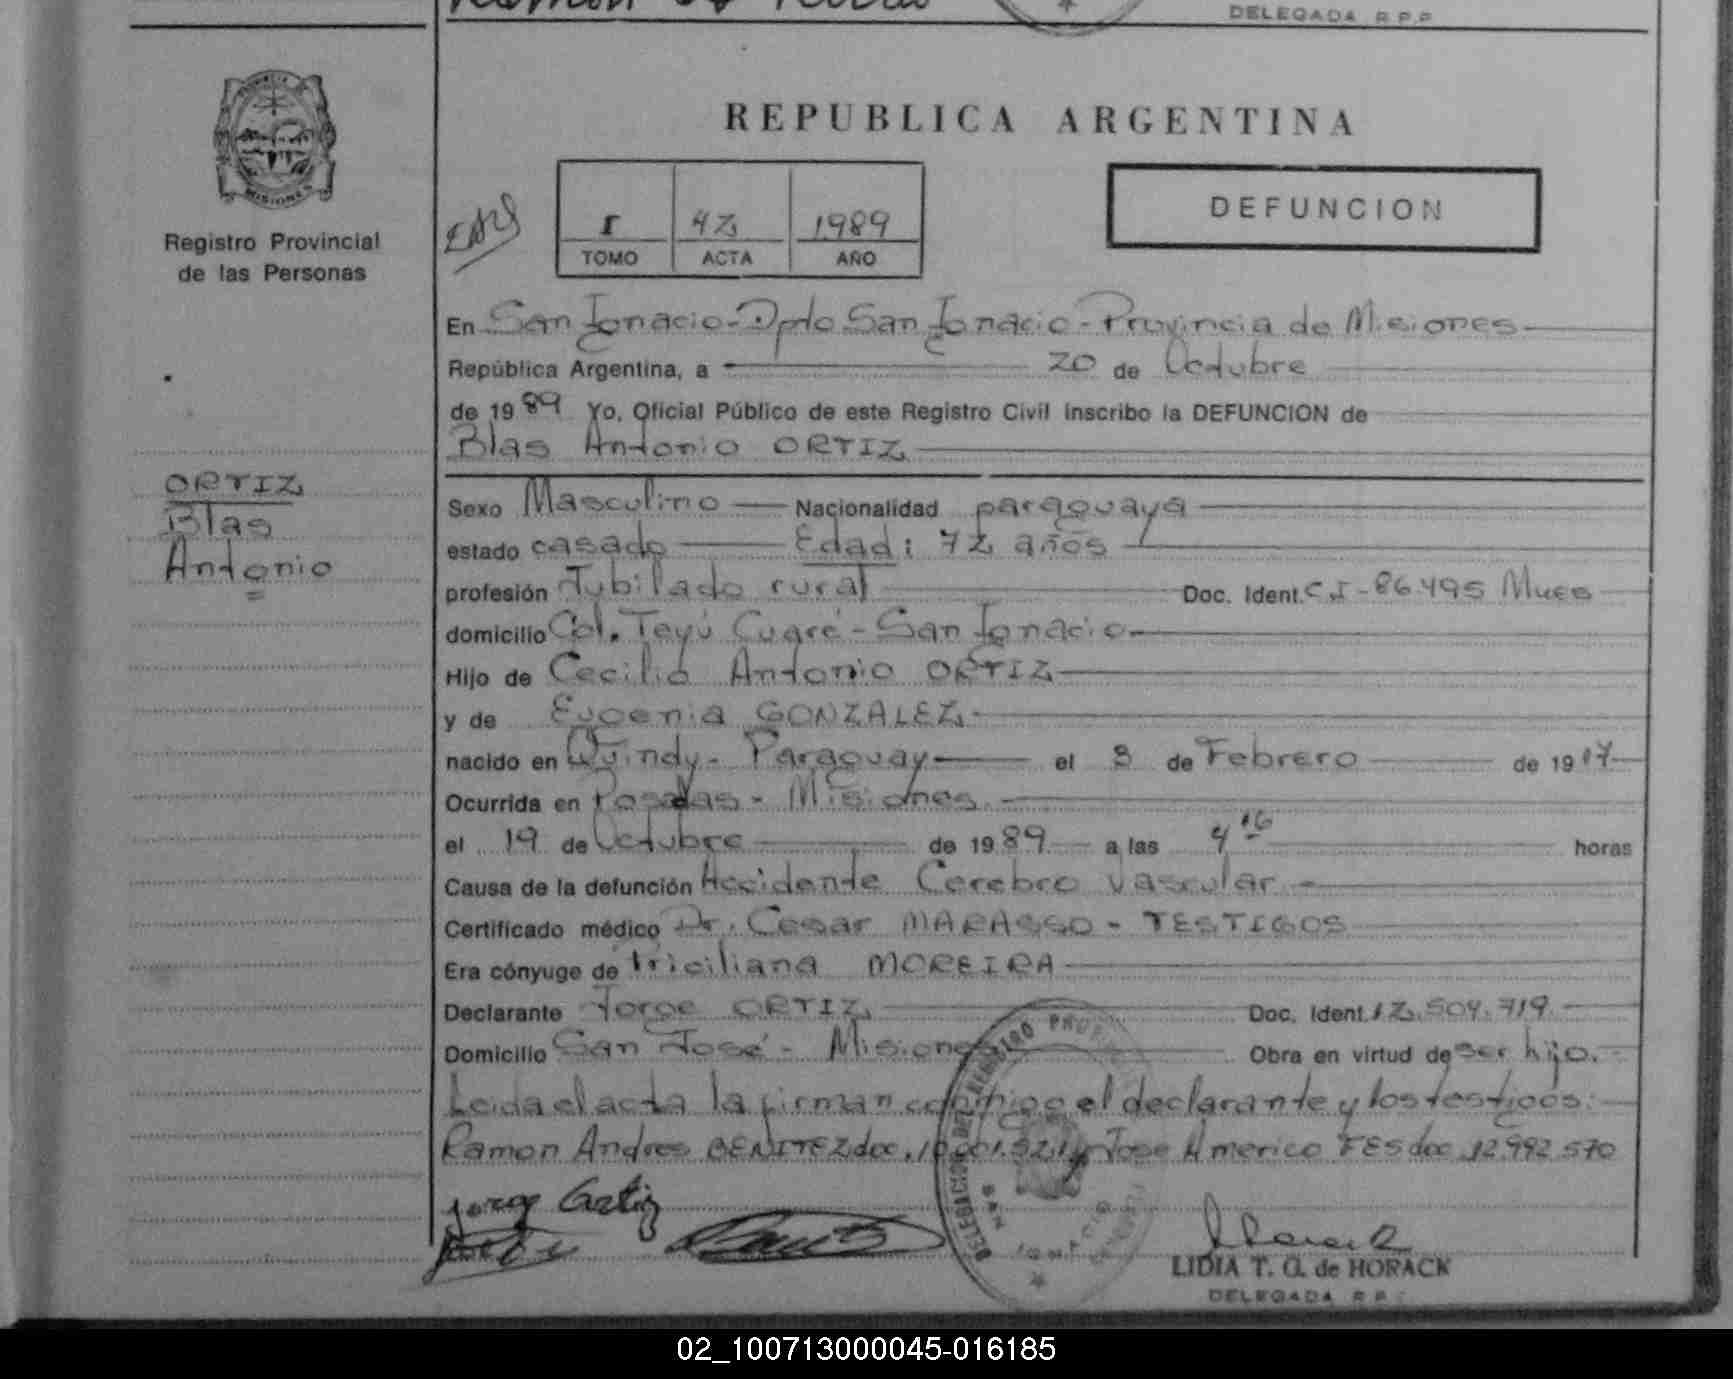 DELEGADA R.P.P.
PROVINCIA
MISIONES
Registro Provincial
de las Personas
REPUBLICA ARGENTINA
I 42 1989
TOMO ACTA AÑO
DEFUNCION
En San Ignacio - Dpto San Ignacio - Provincia de Misiones
República Argentina, a 20 de Octubre
de 1989 Yo, Oficial Público de este Registro Civil inscribo la DEFUNCION de
Blas Antonio ORTIZ
ORTIZ
Blas
Antonio
Sexo Masculino Nacionalidad paraguaya
estado casado Edad: 72 años
profesión Jubilado rural Doc. Ident. C.I - 86.495 Mnes
domicilio Col. Teyú Cuaré - San Ignacio
Hijo de Cecilio Antonio ORTIZ
y de Eugenia GONZALEZ
nacido en Quindy - Paraguay el 3 de Febrero de 1917
Ocurrida en Posadas - Misiones
el 19 de Octubre de 1989 a las 4 16 horas
Causa de la defunción Accidente Cerebro vascular
Certificado médico Dr. Cesar MARASSO - TESTIGOS
Era cónyuge de MOREIRA
Declarante Jorge ORTIZ Doc. Ident. 12.504.719
Domicilio San José - Misiones Obra en virtud de ser hijo.
Leida el acta la firman conmigo el declarante y los testigos:
Ramon Andres BENITEZ doc. y Jose Americo FES doc 12.992.570
Jorge Ortiz
DELEGACION DEL REGISTRO
SAN IGNACIO
LIDIA T. G. de HORACK
DELEGADA R.P.
02_100713000045-016185